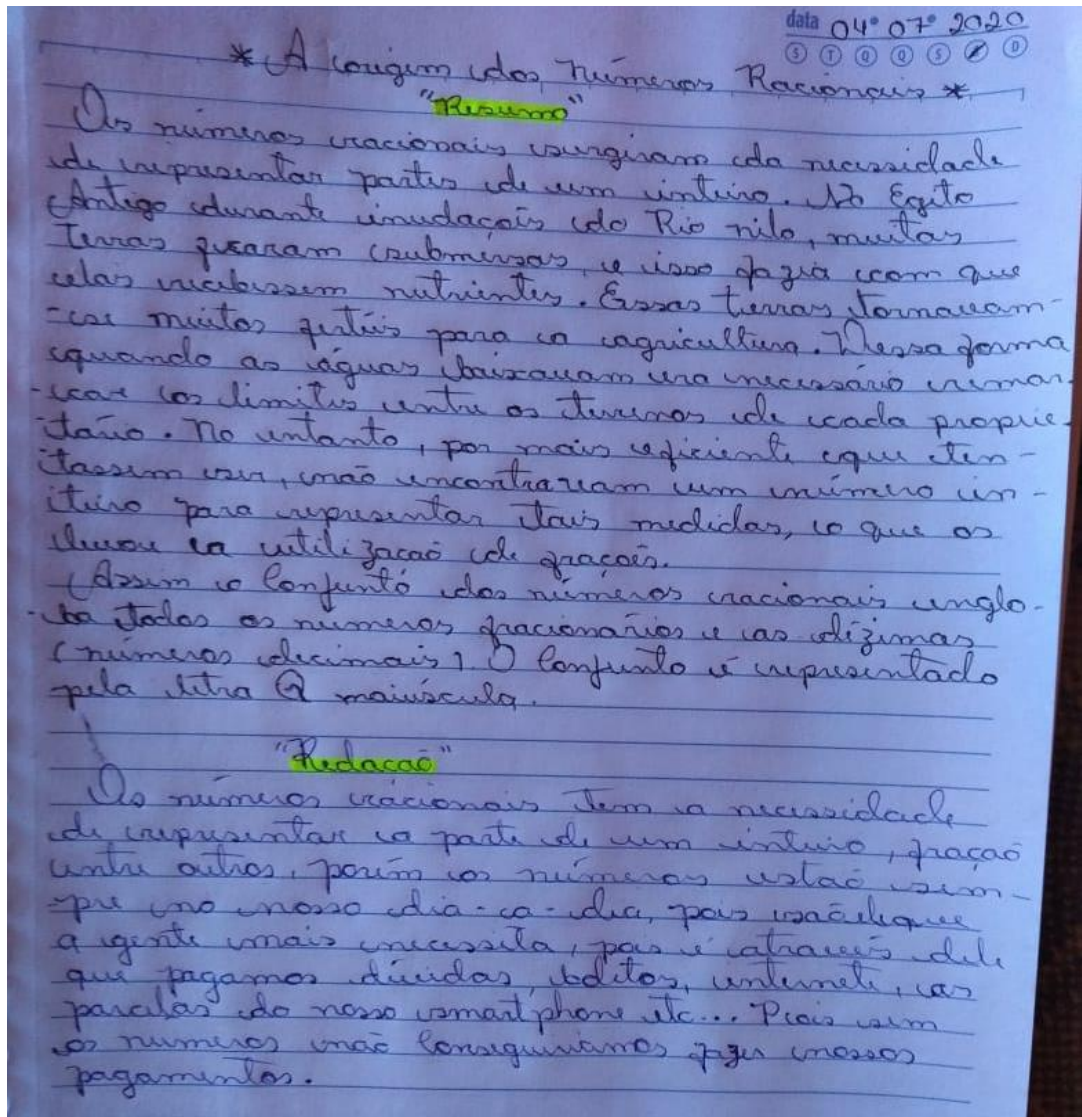 data 04° 07° 2020
S T Q Q S S D
* A origem dos números Racionais *
"Resumo"
Os números racionais surgiram da necessidade
de representar partes de um inteiro. No Egito
Antigo durante inudaçois do Rio nilo, muitas
terras ficaram submersas, e isso fazia com que
elas recebessem nutrientes. Essas terras tornavam-
-se muitos ferteis para a agricultura. Dessa forma
quando as águas baixavam era necessário remar-
-car os limites entre os terrenos de cada proprie-
-tário. No entanto, por mais eficiente que ten-
tassem ser, não encontravam um número in-
teiro para representar tais medidas, o que os
levou a utilização de fraçoẽs.
Assim o Conjunto dos números racionais englo-
-ba todos os números fracionários e as dízimas
(números decimais). O Conjunto é representado
pela letra Q maiúscula.
"Redação"
Os números racionais tem a necessidade
de representar a parte de um inteiro, fração
entre outros, porém os números estão sem-
-pre no nosso dia-a-dia, pois
a gente mais necessita, pois é através dele
que pagamos dívidas, boletos, internete, as
parcelas do nosso smartphone etc... Pois sem
os numeros não Conseguiriamos fazer nossos
pagamentos.